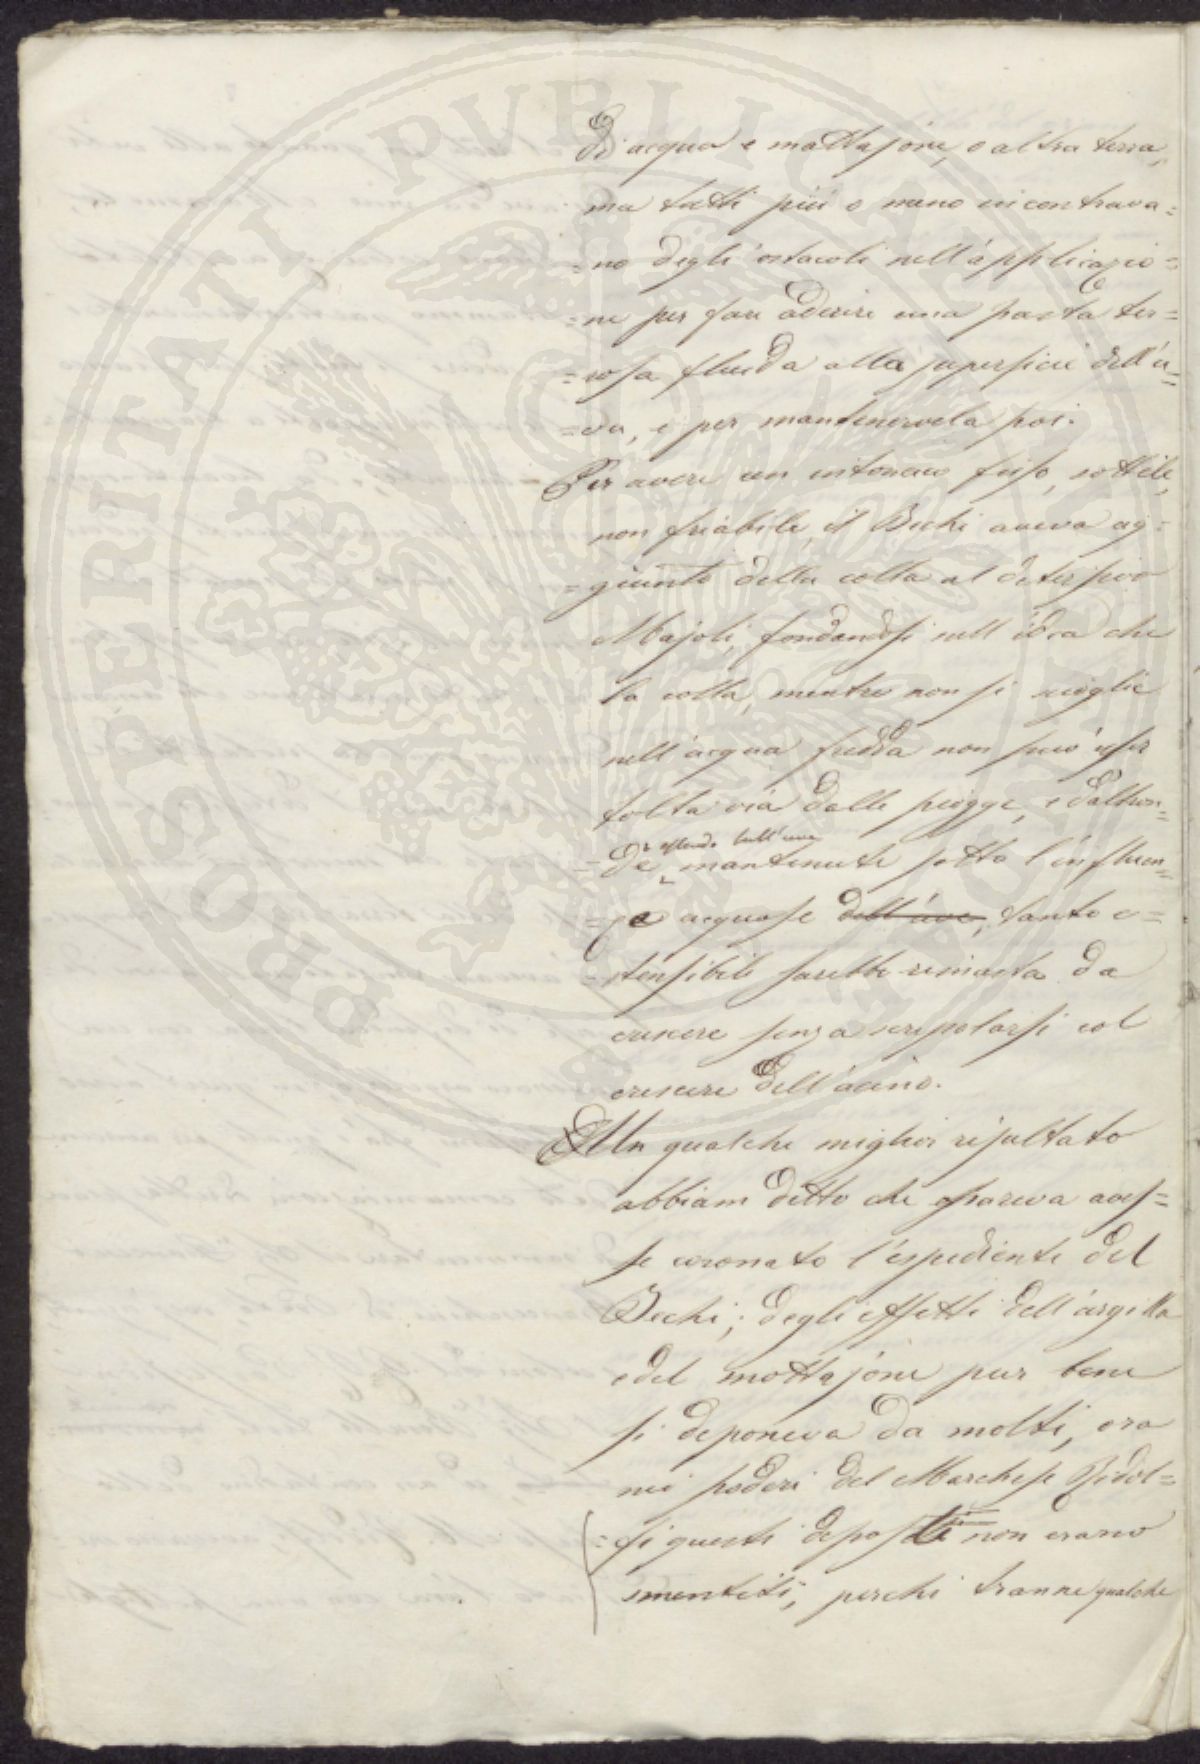 di acqua e mattajone, o altra terra,
ma tutti più o meno incontrava=
=no degli ostacoli nell'applicazio=
=ne per fare aderire una pasta ter=
=rosa fluida alla superficie dell'u=
=va, e per mantenervela poi.
Per avere un intonaco fisso, sottile,
non friabile, il Bechi aveva ag=
=giunto della colla al detersivo
Majoli, fondandosi sull'idea che
la colla, mentre non si scioglie
nell'acqua fredda non può esser
tolta via dalle piogge, e d'altron=
sull'uva
=de, mantenute sotto l'influen=
=ze acquose dell'uva, tanto e=
=stensibile sarebbe rimasta da
crescere senza screpolarsi col
crescere dell'acino.
Un qualche miglior risultato
abbiam detto che pareva aves=
se coronato l'espediente del
Bechi; degli effetti dell'argilla
e del mattajone pur bene
si deponeva da molti, ora
nei poderi del Marchese Ridol=
=fi questi deposti non erano
smentiti, perchè tranne qualche
PROSPERITATI PUBLICAE